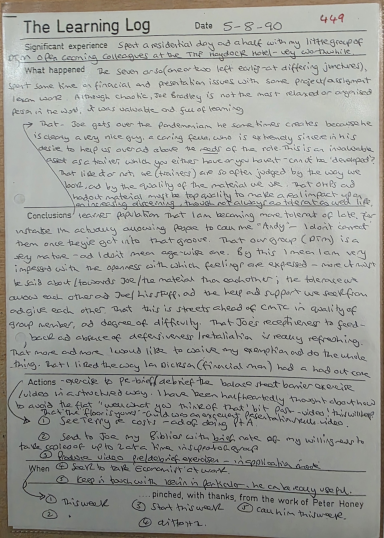 449
The Learning Log Date 5-8-90
Significant experience Spent a residential day and a half with my little group of
Open Learning colleagues at the THF Haydock hotel - very worthwhile
What happened The seven or so (one or two left early at differing junctures),
spent some time on financial and presentation issues with some project/assignment
team work. Although chaotic, Joe Bradley is not the most relaxed or organised
person in the world, it was valuable and full of learning.
That Joe gets over the pandemonium he some times creates because he
is clearly a very nice guy, a caring fella, who is extremely sincere in his
desire to help us over and above the needs of the role. This is an invaluable
asset as a trainer which you either have or you haven't - can it be 'developed'?
That like it or not, we (trainers) are so often judged by the way we
look and by the quality of the material we use. That OHP's and
handout material must be top quality to make a real impact upon
an increasing discerning, though not always as tolerant as well, life.
Conclusions learner population. That I am becoming more tolerant of late, for
instance I'm actually allowing people to call me "Andy" - I don't correct
them once they've got into that groove. That our group (DTM) is a
very mature - and I don't mean age-wise one. By this I mean I am very
impressed with the openness with which feelings are exposed - more it must
be said about/towards Joe/the material than each other's, the tolerance we
allow each other and Joe/his stuff, and the help and support we seek from
and give each other. That this is streets ahead of CMTC in quality of
group member, and degree of difficulty. That Joe's receptiveness to feed-
back and absence of defensiveness/retaliation is really refreshing.
That more and more I would like to waive my exemption and do the whole
thing. That I liked the way Ian Dickson (financial man) had a hand out came
Actions - exercise to pre-brief/debrief the balance sheet barrier exercise/
video in a structured way. I have been half heartedly thought about how
to avoid the flat "well what you think of that" bit post-video; this will help
That the floor is yours - build up an energetic presentation skills video.
① See Terry re costs - and of doing PTA
② Send to Joe my Biblios with brief note of my willingness to
take copies of up to 2 at a time in support of group
③ Produce video prebrief/debrief exercises - in application mode
④ Start to take Economist at work
When ⑤ Keep in touch with Kevin in particular, he can be really useful.
...pinched, with thanks, from the work of Peter Honey
① This week ③ Start this week ⑤ Call him this week.
② "
④ ditto + 2.